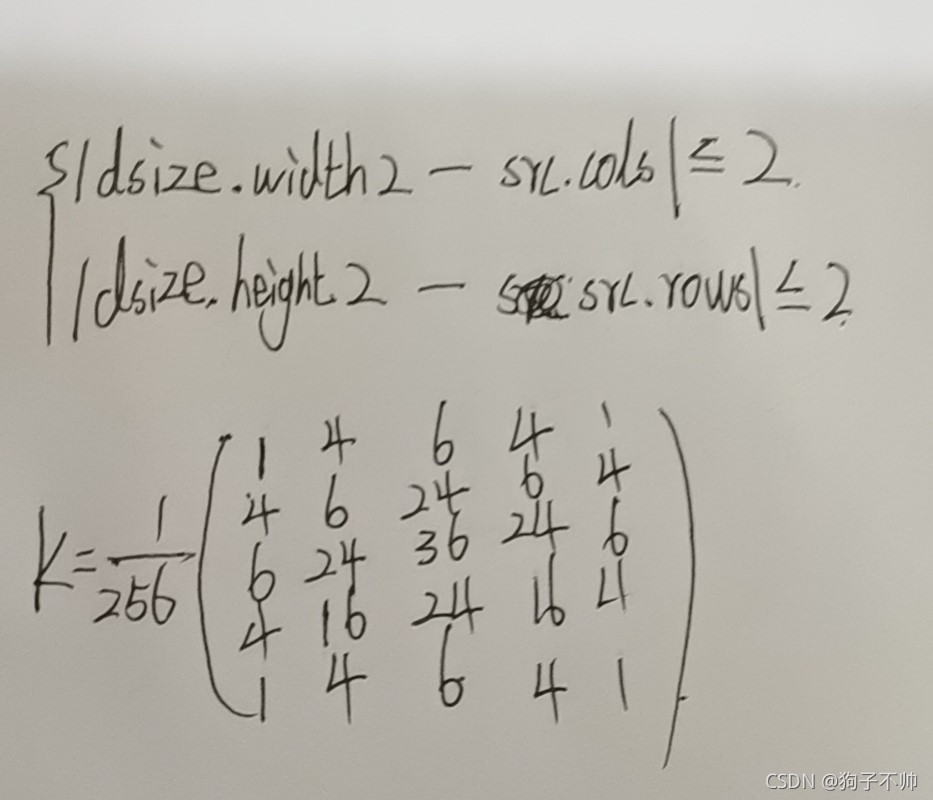 {|dsize.width2 - src.cols| ≤ 2.
|dsize.height.2 - src.rows| ≤ 2.
1 4 6 4 1
4 6 24 6 4
K = 1/256 6 24 36 24 6
4 16 24 16 4
1 4 6 4 1
CSDN @狗子不帅